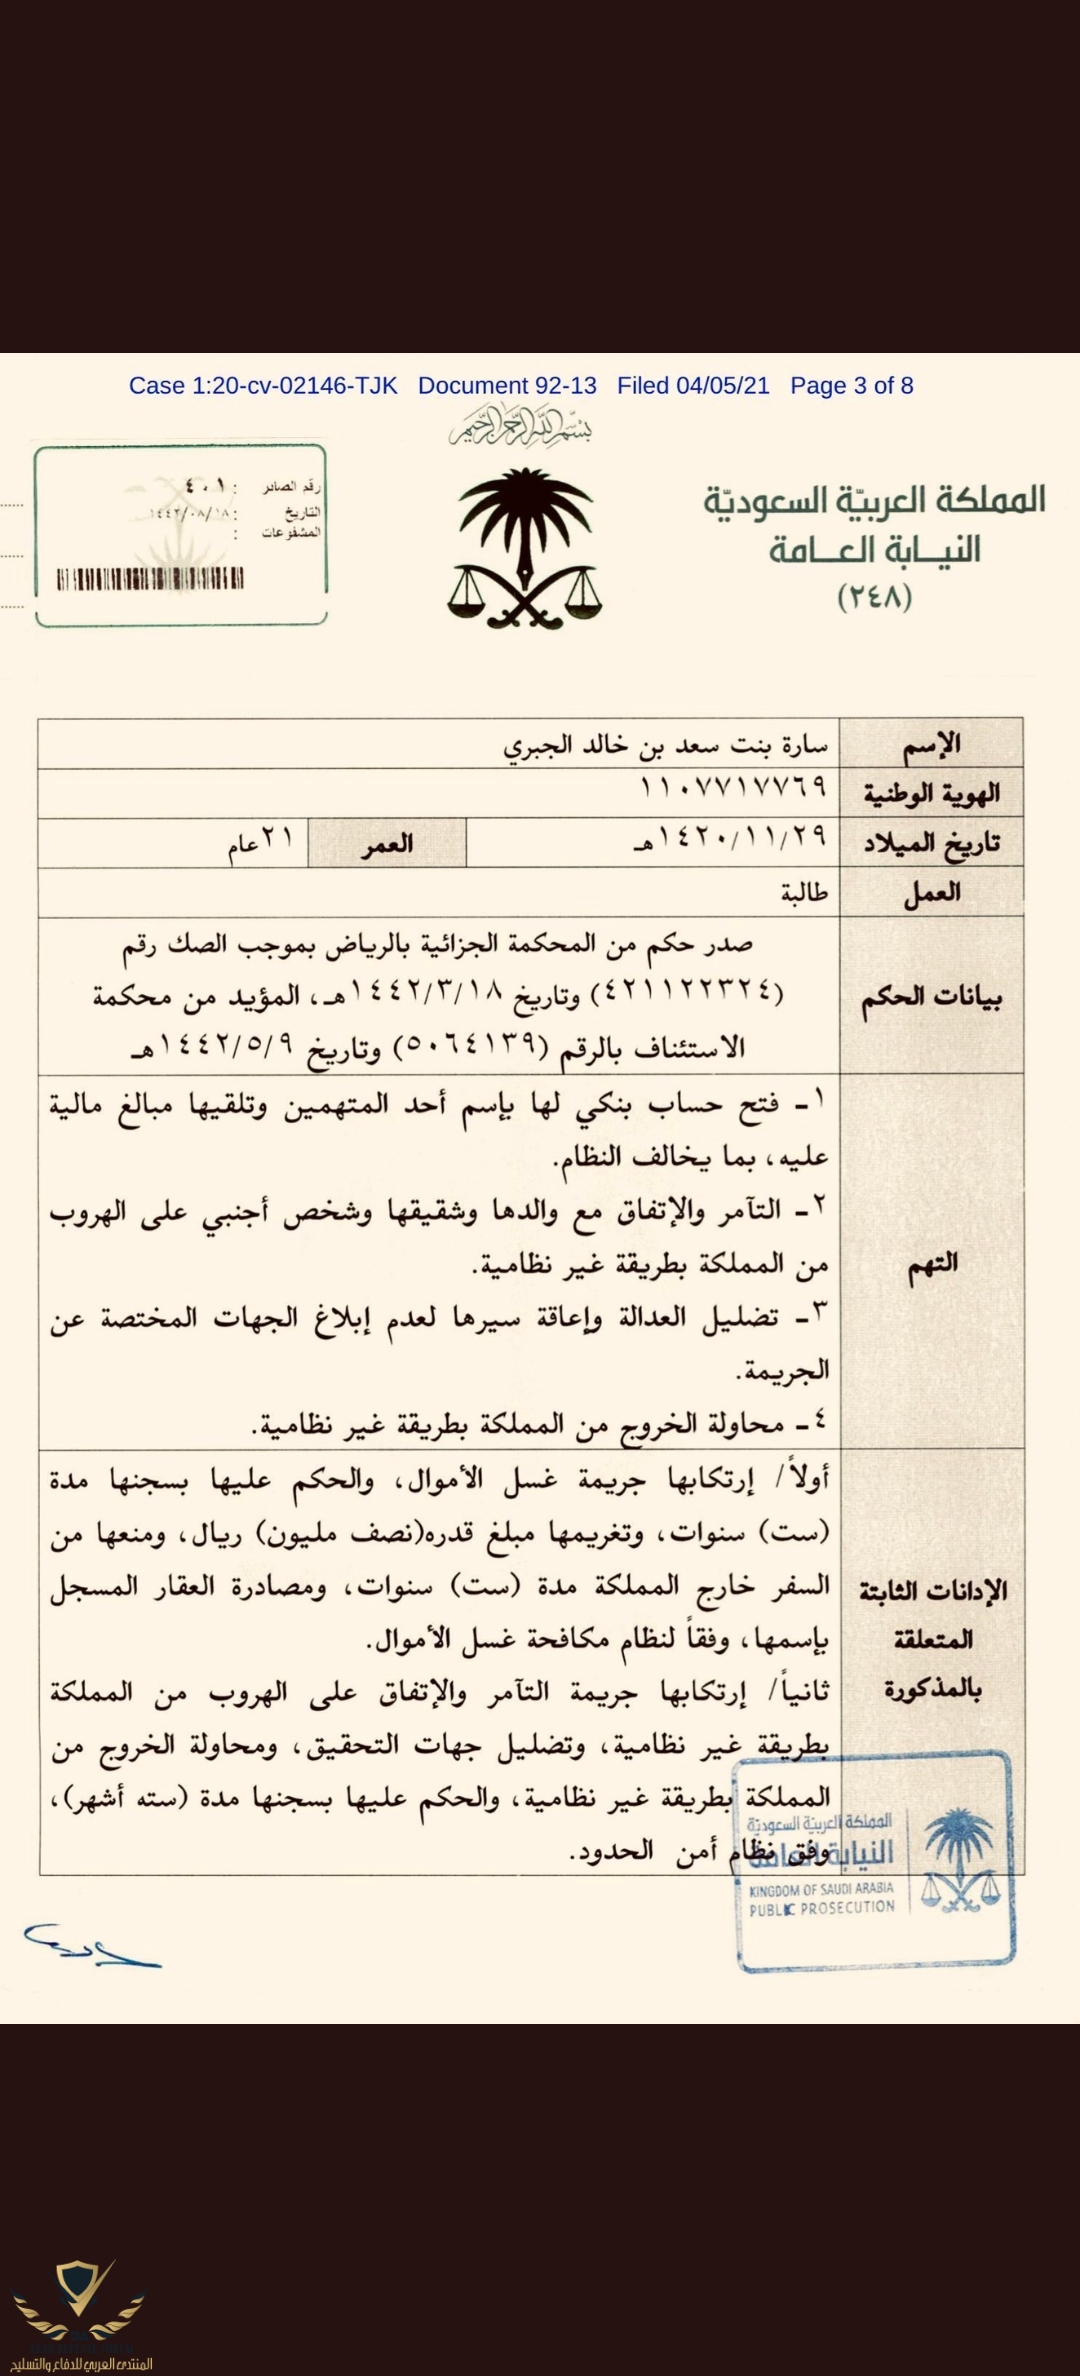 Case 1:20-cv-02146-TJK Document 92-13 Filed 04/05/21 Page 3 of 8
بسم الله الرحمن الرحيم
المملكة العربيّة السعوديّة
النيــابة العــامة
(٢٤٨)
رقم الصادر : ٤٠١
التاريخ : ١٤٤٢/٠٨/١٨
المشفوعات :
الإسم سارة بنت سعد بن خالد الجبري
الهوية الوطنية ١١٠٧٧١٧٧٦٩
تاريخ الميلاد ١٤٢٠/١١/٢٩هـ العمر ٢١عام
العمل طالبة
بيانات الحكم
صدر حكم من المحكمة الجزائية بالرياض بموجب الصك رقم
(٤٢١١٢٢٣٢٤) وتاريخ ١٤٤٢/٣/١٨هـ، المؤيد من محكمة
الاستئناف بالرقم (٥٠٦٤١٣٩) وتاريخ ١٤٤٢/٥/٩هـ
التهم
١- فتح حساب بنكي لها بإسم أحد المتهمين وتلقيها مبالغ مالية
عليه، بما يخالف النظام.
٢- التآمر والإتفاق مع والدها وشقيقها وشخص أجنبي على الهروب
من المملكة بطريقة غير نظامية.
٣- تضليل العدالة وإعاقة سيرها لعدم إبلاغ الجهات المختصة عن
الجريمة.
٤- محاولة الخروج من المملكة بطريقة غير نظامية.
الإدانات الثابتة
المتعلقة
بالمذكورة
أولاً/ إرتكابها جريمة غسل الأموال، والحكم عليها بسجنها مدة
(ست) سنوات، وتغريمها مبلغ قدره(نصف مليون) ريال، ومنعها من
السفر خارج المملكة مدة (ست) سنوات، ومصادرة العقار المسجل
بإسمها، وفقاً لنظام مكافحة غسل الأموال.
ثانياً/ إرتكابها جريمة التآمر والإتفاق على الهروب من المملكة
بطريقة غير نظامية، وتضليل جهات التحقيق، ومحاولة الخروج من
المملكة بطريقة غير نظامية، والحكم عليها بسجنها مدة (سته أشهر)،
وفق نظام أمن الحدود.
المملكة العربية السعودية
النيابة العامة
KINGDOM OF SAUDI ARABIA
PUBLIC PROSECUTION
المنتدى العربي للدفاع والتسليح